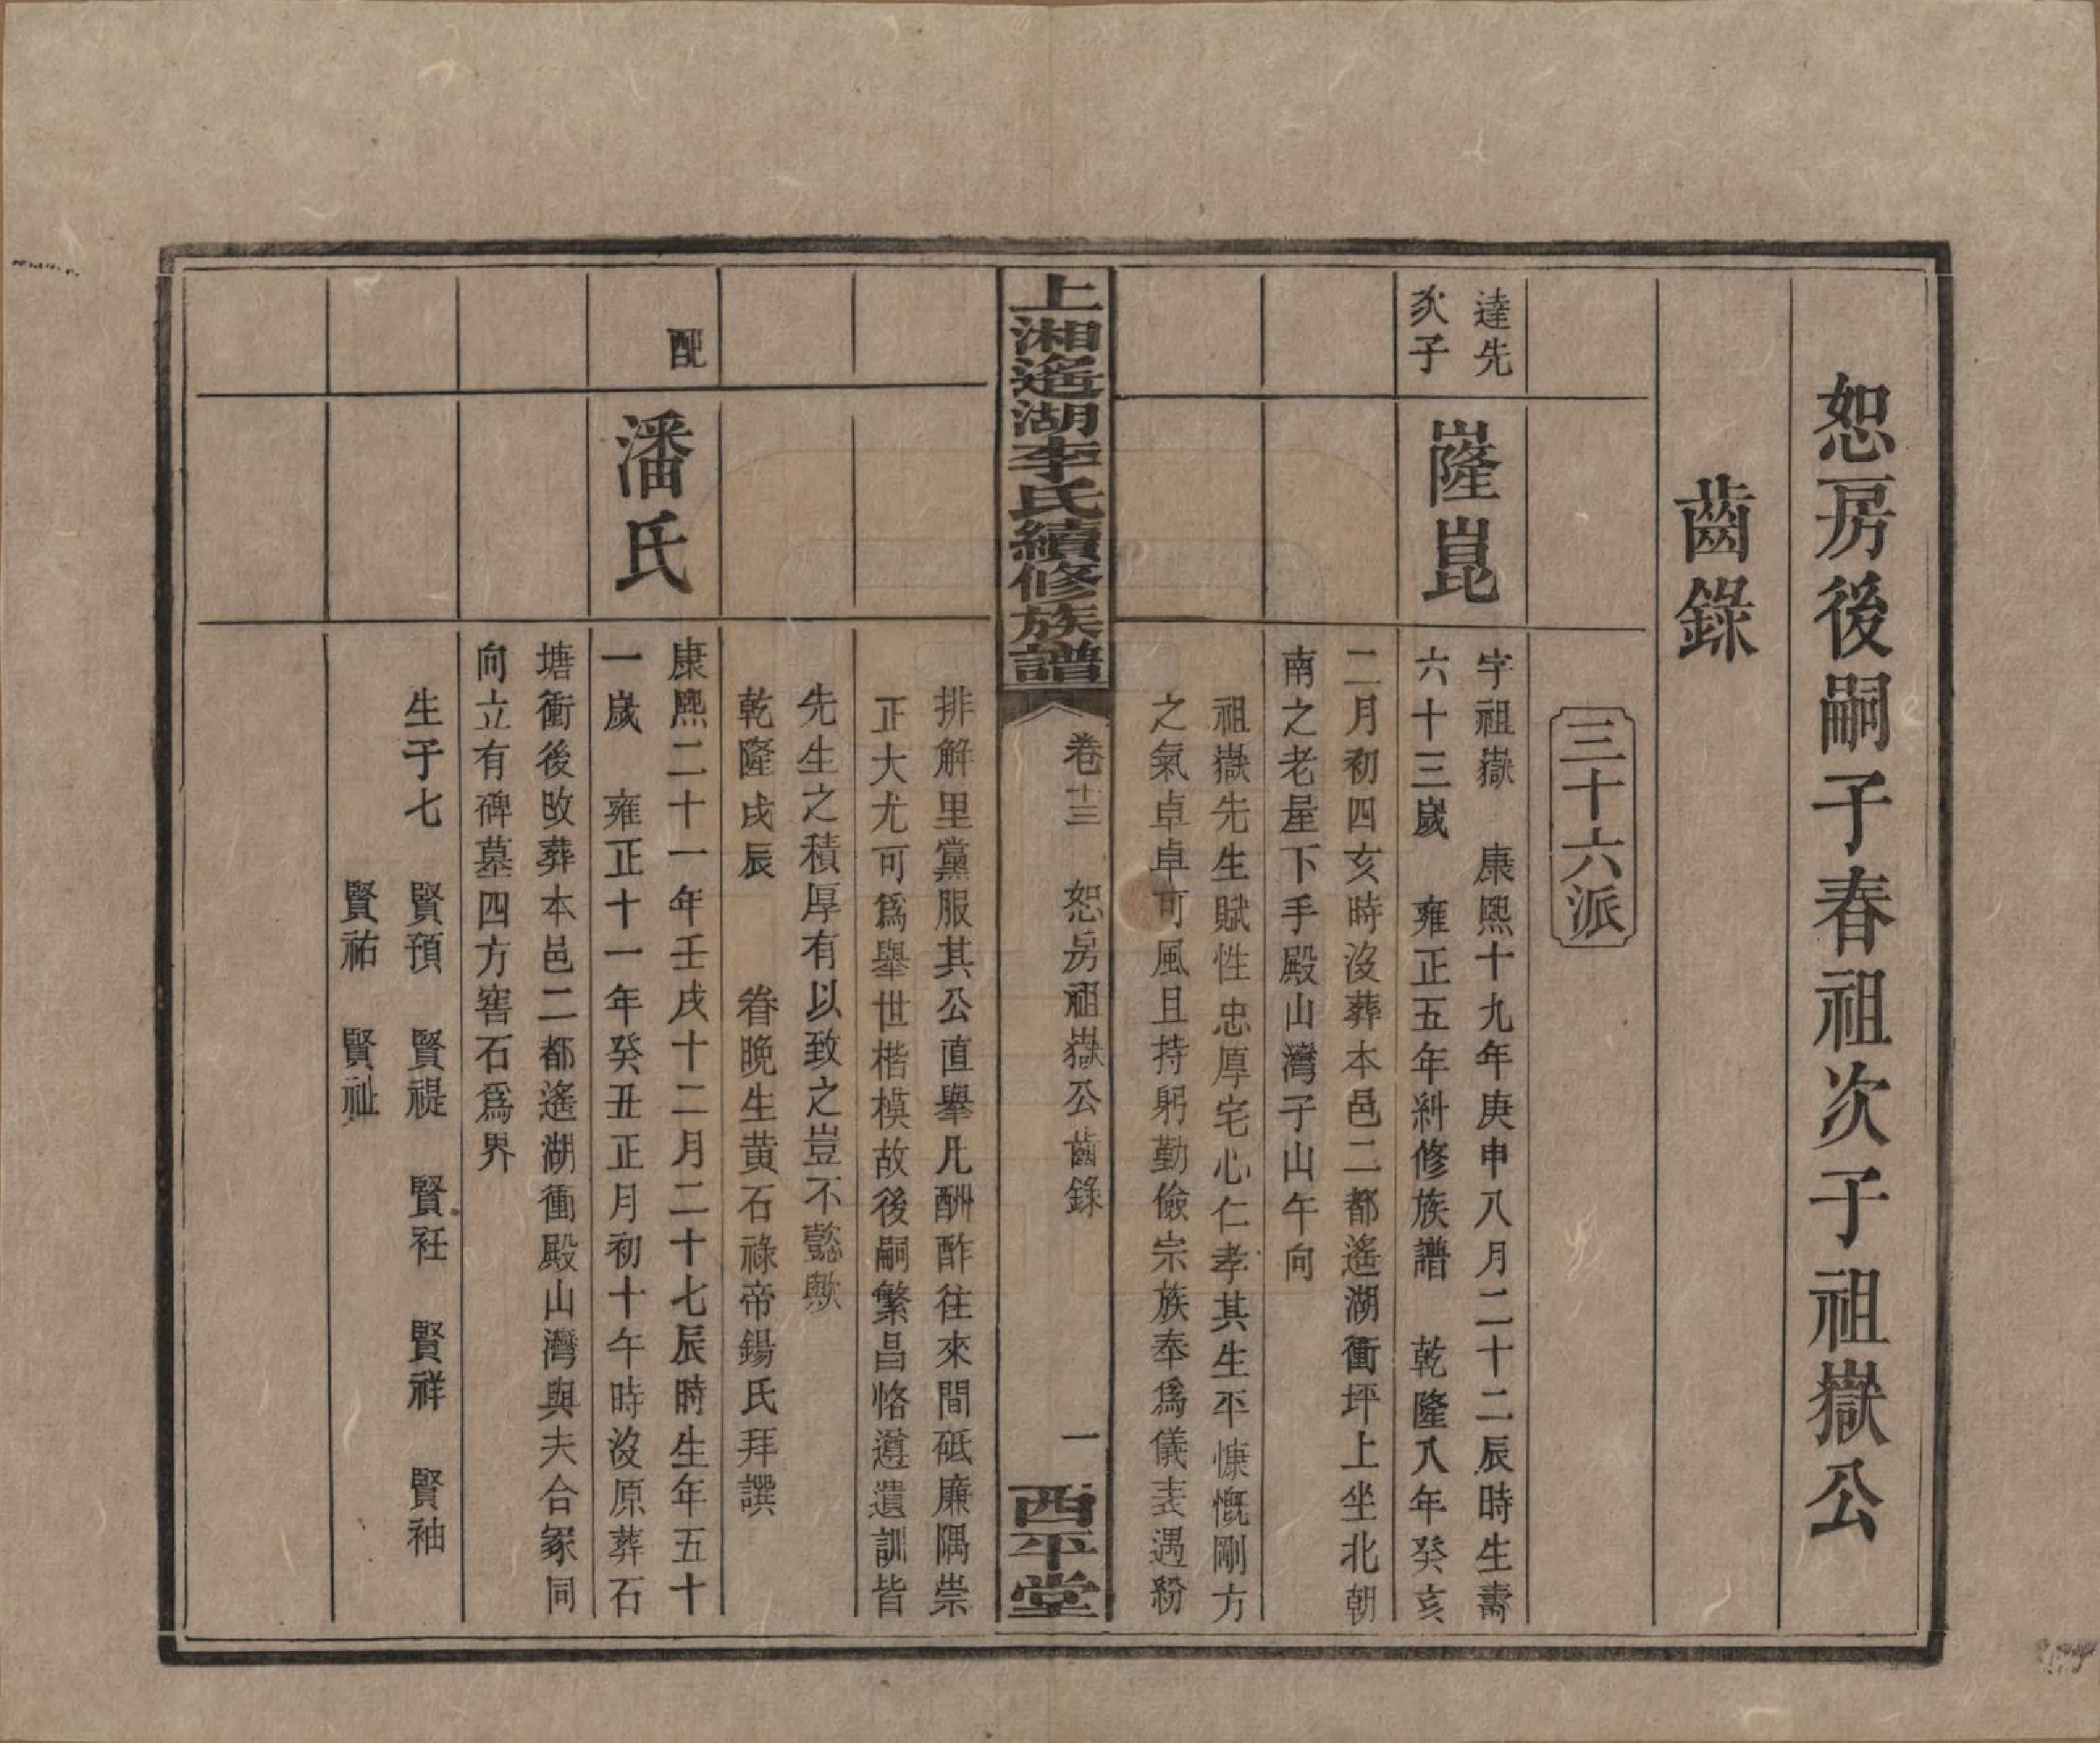 恕房後嗣子春祖次子祖嶽公
齒錄
三十六派
達先
次子
嶐崑
字祖嶽　康熙十九年庚申八月二十二辰時生壽
六十三歲　雍正五年糾修族譜　乾隆八年癸亥
二月初四亥時沒葬本邑二都遙湖衝坪上坐北朝
南之老屋下手殿山灣子山午向
祖嶽先生賦性忠厚宅心仁孝其生平慷慨剛方
之氣卓卓可風且持躬勤儉宗族奉爲儀表遇紛
上湘遙湖李氏續修族譜
卷十三　恕房祖嶽公齒錄　一
西平堂
排解里黨服其公直舉凡酬酢往來間砥廉隅崇
正大尤可爲舉世楷模故後嗣繁昌恪遵遺訓皆
先生之積厚有以致之豈不懿歟
乾隆戊辰　眷晚生黄石祿帝錫氏拜譔
配
潘氏
康熙二十一年壬戌十二月二十七辰時生年五十
一歲　雍正十一年癸丑正月初十午時沒原葬石
塘衝後改葬本邑二都遙湖衝殿山灣與夫合冢同
向立有碑墓四方窖石爲界
生子七　賢預　賢禔　賢衽　賢祥　賢袖
賢祐　賢祉